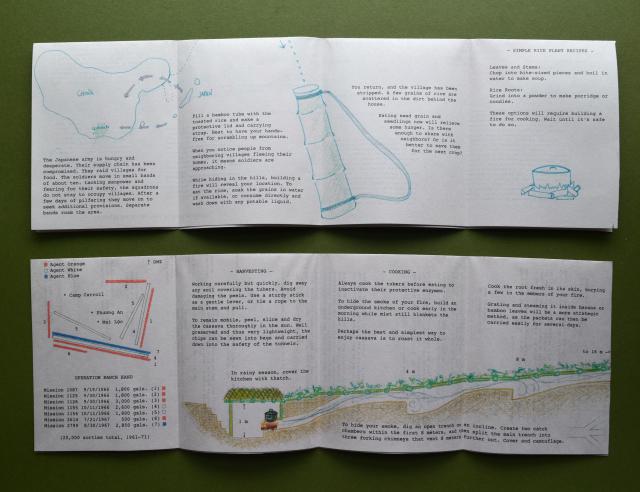 CHINA
JAPAN
The Japanese army is hungry and
desperate. Their supply chain has been
compromised. They raid villages for
food. The soldiers move in small bands
of about ten. Lacking manpower and
fearing for their safety, the squadrons
do not stay to occupy villages. After a
few days of pilfering they move on to
seek additional provisions. Separate
bands roam the area.
Fill a bamboo tube with the
toasted rice and make a
protective lid and carrying
strap. Best to have your hands-
free for scrambling up mountains.
When you notice people from
neighboring villages fleeing their
homes, it means soldiers are
approaching.
While hiding in the hills, building a
fire will reveal your location. To
eat the rice, soak the grains in water
if available, or consume directly and
wash down with any potable liquid.
You return, and the village has been
stripped. A few grains of rice are
scattered in the dirt behind the
house.
Eating seed grain and
seedlings now will relieve
some hunger. Is there
enough to share with
neighbors? Or is it
better to save them
for the next crop?
— SIMPLE RICE PLANT RECIPES —
Leaves and Stems:
Chop into bite-sized pieces and boil in
water to make soup.
Rice Roots:
Grind into a powder to make porridge or
noodles.
These options will require building a
fire for cooking. Wait until it's safe
to do so.
Agent Orange
Agent White
Agent Blue
↑ DMZ
• Camp Carroll
• Khuong An
• Mai Lộc
OPERATION RANCH HAND
Mission 1125 9/30/1966
(20,000 sorties total, 1961-71)
— HARVESTING —
Working carefully but quickly, dig away
any soil covering the tubers. Avoid
damaging the peels. Use a sturdy stick
as a gentle lever, or tie a rope to the
main stem and pull.
To remain mobile, peel, slice and dry
the cassava thoroughly in the sun. Well
preserved and thus very lightweight, the
chips can be sewn into bags and carried
down into the safety of the tunnels.
In rainy season, cover the
kitchen with thatch.
— COOKING —
Always cook the tubers before eating to
inactivate their protective enzymes.
To hide the smoke of your fire, build an
underground kitchen or cook early in the
morning while mist still blankets the
hills.
Perhaps the best and simplest way to
enjoy cassava is to roast it whole.
Cook the root fresh in its skin, burying
a few in the embers of your fire.
Grating and steaming it inside banana or
bamboo leaves will be a more strategic
method, as the packets can then be
carried easily for several days.
1 m
4 m
8 m
to 16 m →
To hide your smoke, dig an open trench on an incline. Create two catch
chambers within the first 8 meters, and then split the main trench into
three forking chimneys that vent 8 meters further out. Cover and camouflage.